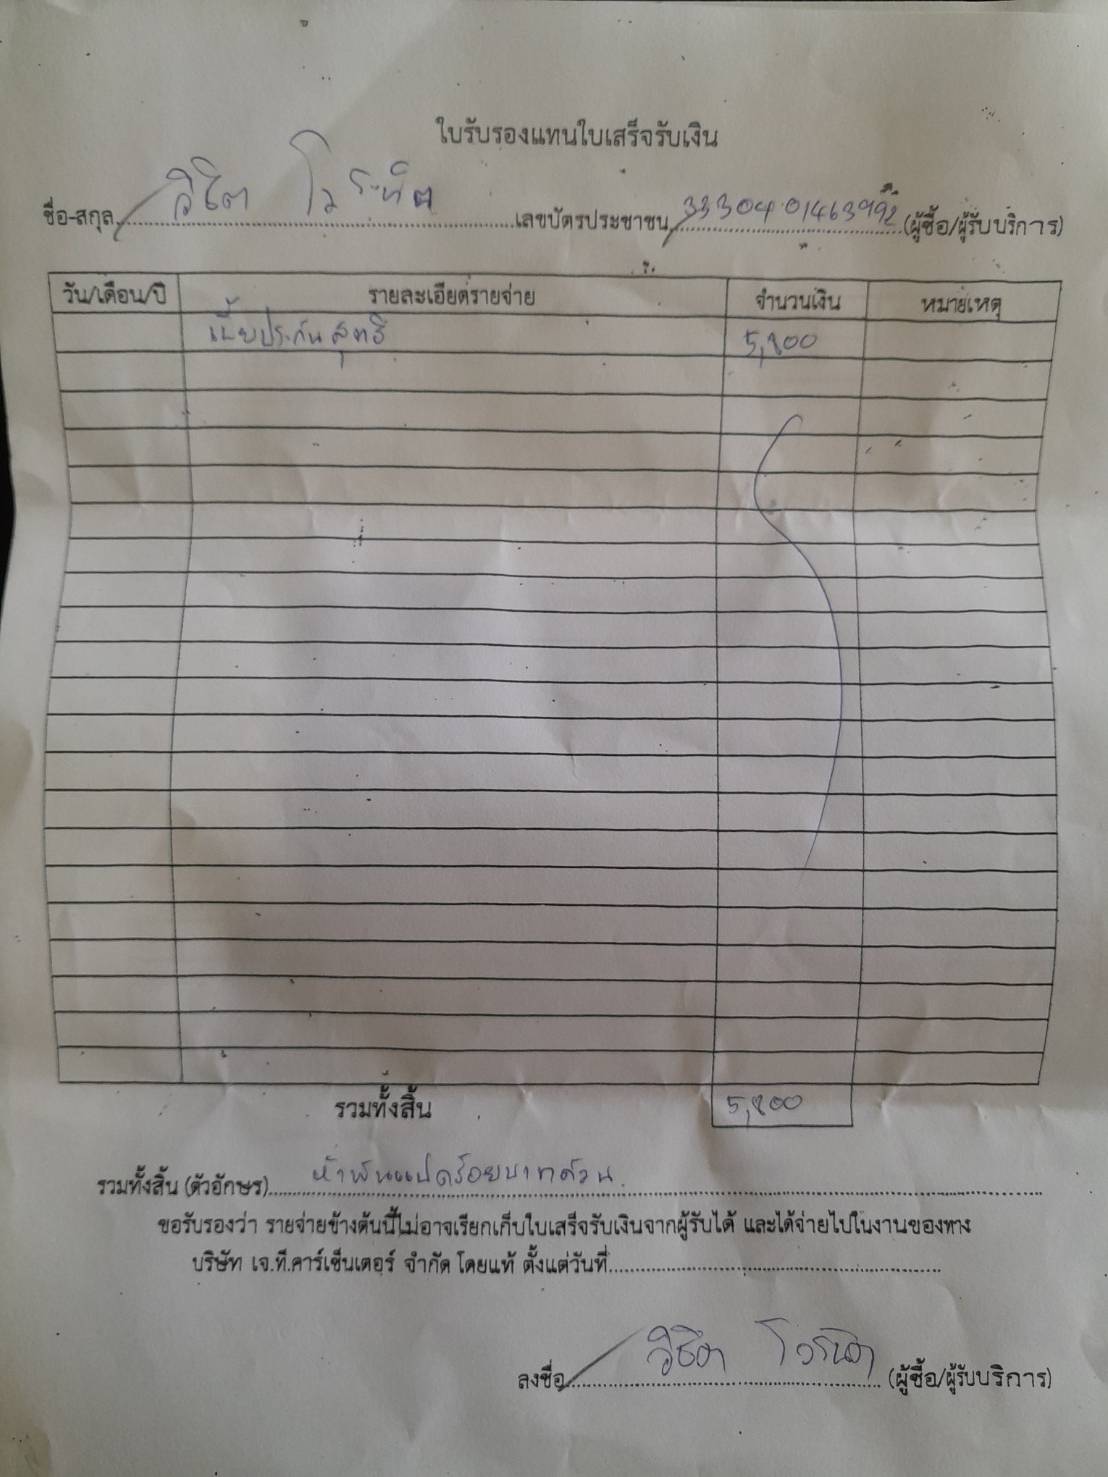 ใบรับรองแทนใบเสร็จรับเงิน
ชื่อ-สกุล วิชิต เลขบัตรประชาชน (ผู้ซื้อ/ผู้รับบริการ)
วัน/เดือน/ปี รายละเอียดรายจ่าย จำนวนเงิน หมายเหตุ
เบี้ยประกันสุทธิ 5,800
รวมทั้งสิ้น 5,800
รวมทั้งสิ้น (ตัวอักษร) ห้าพันแปดร้อยบาทถ้วน
ขอรับรองว่า รายจ่ายข้างต้นนี้ไม่อาจเรียกเก็บใบเสร็จรับเงินจากผู้รับได้ และได้จ่ายไปในงานของทาง
บริษัท เจ.ที.คาร์เซ็นเตอร์ จำกัด โดยแท้ ตั้งแต่วันที่
ลงชื่อ วิชิต (ผู้ซื้อ/ผู้รับบริการ)